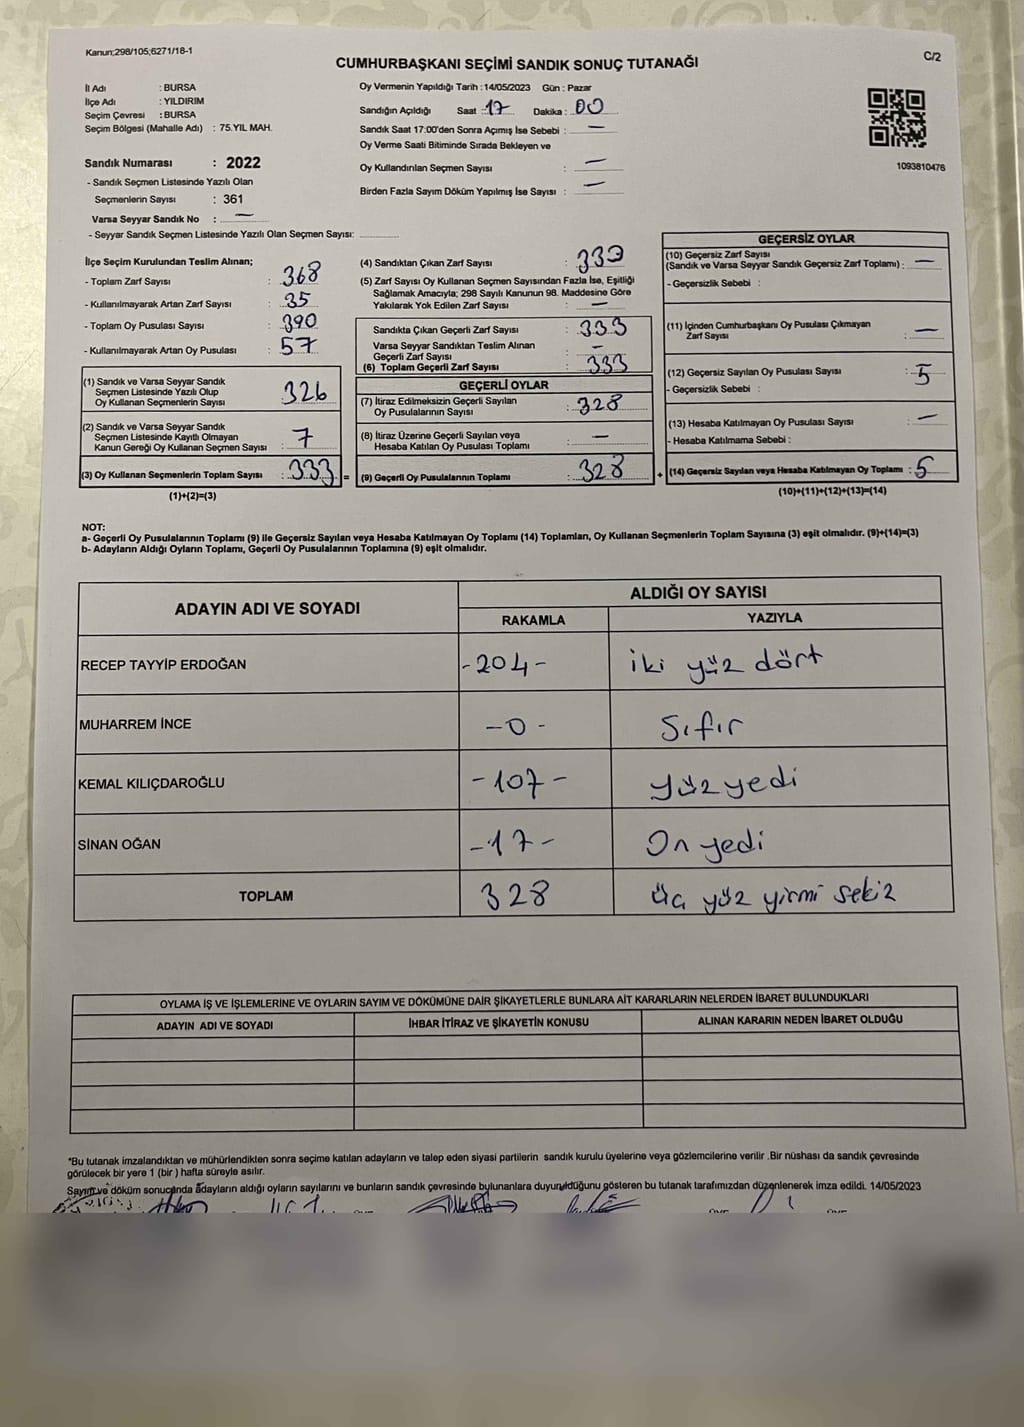 Kanun;298/105;6271/18-1
C/2
CUMHURBAŞKANI SEÇİMİ SANDIK SONUÇ TUTANAĞI
İl Adı : BURSA
İlçe Adı : YILDIRIM
Seçim Çevresi : BURSA
Seçim Bölgesi (Mahalle Adı) : 75.YIL MAH.
Sandık Numarası : 2022
- Sandık Seçmen Listesinde Yazılı Olan
Seçmenlerin Sayısı : 361
Varsa Seyyar Sandık No : —
- Seyyar Sandık Seçmen Listesinde Yazılı Olan Seçmen Sayısı:
Oy Vermenin Yapıldığı Tarih : 14/05/2023 Gün : Pazar
Sandığın Açıldığı Saat : 17 Dakika : 00
Sandık Saat 17:00'den Sonra Açımış İse Sebebi : —
Oy Verme Saati Bitiminde Sırada Bekleyen ve
Oy Kullandırılan Seçmen Sayısı : —
Birden Fazla Sayım Döküm Yapılmış İse Sayısı : —
1093810476
İlçe Seçim Kurulundan Teslim Alınan;
- Toplam Zarf Sayısı : 368
- Kullanılmayarak Artan Zarf Sayısı : 35
- Toplam Oy Pusulası Sayısı : 390
- Kullanılmayarak Artan Oy Pusulası : 57
(1) Sandık ve Varsa Seyyar Sandık
Seçmen Listesinde Yazılı Olup
Oy Kullanan Seçmenlerin Sayısı : 326
(2) Sandık ve Varsa Seyyar Sandık
Seçmen Listesinde Kayıtlı Olmayan
Kanun Gereği Oy Kullanan Seçmen Sayısı : 7
(3) Oy Kullanan Seçmenlerin Toplam Sayısı : 333 =
(1)+(2)=(3)
(4) Sandıktan Çıkan Zarf Sayısı : 333
(5) Zarf Sayısı Oy Kullanan Seçmen Sayısından Fazla İse, Eşitliği
Sağlamak Amacıyla; 298 Sayılı Kanunun 98. Maddesine Göre
Yakılarak Yok Edilen Zarf Sayısı : —
Sandıkta Çıkan Geçerli Zarf Sayısı : 333
Varsa Seyyar Sandıktan Teslim Alınan
Geçerli Zarf Sayısı : —
(6) Toplam Geçerli Zarf Sayısı : 333
GEÇERLİ OYLAR
(7) İtiraz Edilmeksizin Geçerli Sayılan
Oy Pusulalarının Sayısı : 328
(8) İtiraz Üzerine Geçerli Sayılan veya
Hesaba Katılan Oy Pusulası Toplamı : —
(9) Geçerli Oy Pusulalarının Toplamı : 328 +
GEÇERSİZ OYLAR
(10) Geçersiz Zarf Sayısı
(Sandık ve Varsa Seyyar Sandık Geçersiz Zarf Toplamı) : —
- Geçersizlik Sebebi :
(11) İçinden Cumhurbaşkanı Oy Pusulası Çıkmayan
Zarf Sayısı : —
(12) Geçersiz Sayılan Oy Pusulası Sayısı : 5
- Geçersizlik Sebebi :
(13) Hesaba Katılmayan Oy Pusulası Sayısı : —
- Hesaba Katılmama Sebebi :
(14) Geçersiz Sayılan veya Hesaba Katılmayan Oy Toplamı : 5
(10)+(11)+(12)+(13)=(14)
NOT:
a- Geçerli Oy Pusulalarının Toplamı (9) ile Geçersiz Sayılan veya Hesaba Katılmayan Oy Toplamı (14) Toplamları, Oy Kullanan Seçmenlerin Toplam Sayısına (3) eşit olmalıdır. (9)+(14)=(3)
b- Adayların Aldığı Oyların Toplamı, Geçerli Oy Pusulalarının Toplamına (9) eşit olmalıdır.
ADAYIN ADI VE SOYADI
ALDIĞI OY SAYISI
RAKAMLA YAZIYLA
RECEP TAYYİP ERDOĞAN -204- iki yüz dört
MUHARREM İNCE -0- Sıfır
KEMAL KILIÇDAROĞLU -107- yüz yedi
SİNAN OĞAN -17- On yedi
TOPLAM 328 üç yüz yirmi sekiz
OYLAMA İŞ VE İŞLEMLERİNE VE OYLARIN SAYIM VE DÖKÜMÜNE DAİR ŞİKAYETLERLE BUNLARA AİT KARARLARIN NELERDEN İBARET BULUNDUKLARI
ADAYIN ADI VE SOYADI İHBAR İTİRAZ VE ŞİKAYETİN KONUSU ALINAN KARARIN NEDEN İBARET OLDUĞU
*Bu tutanak imzalandıktan ve mühürlendikten sonra seçime katılan adayların ve talep eden siyasi partilerin sandık kurulu üyelerine veya gözlemcilerine verilir .Bir nüshası da sandık çevresinde
görülecek bir yere 1 (bir ) hafta süreyle asılır.
Sayım ve döküm sonucunda adayların aldığı oyların sayılarını ve bunların sandık çevresinde bulunanlara duyurulduğunu gösteren bu tutanak tarafımızdan düzenlenerek imza edildi. 14/05/2023